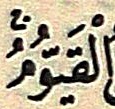 الْقَيُّومُ ۚ